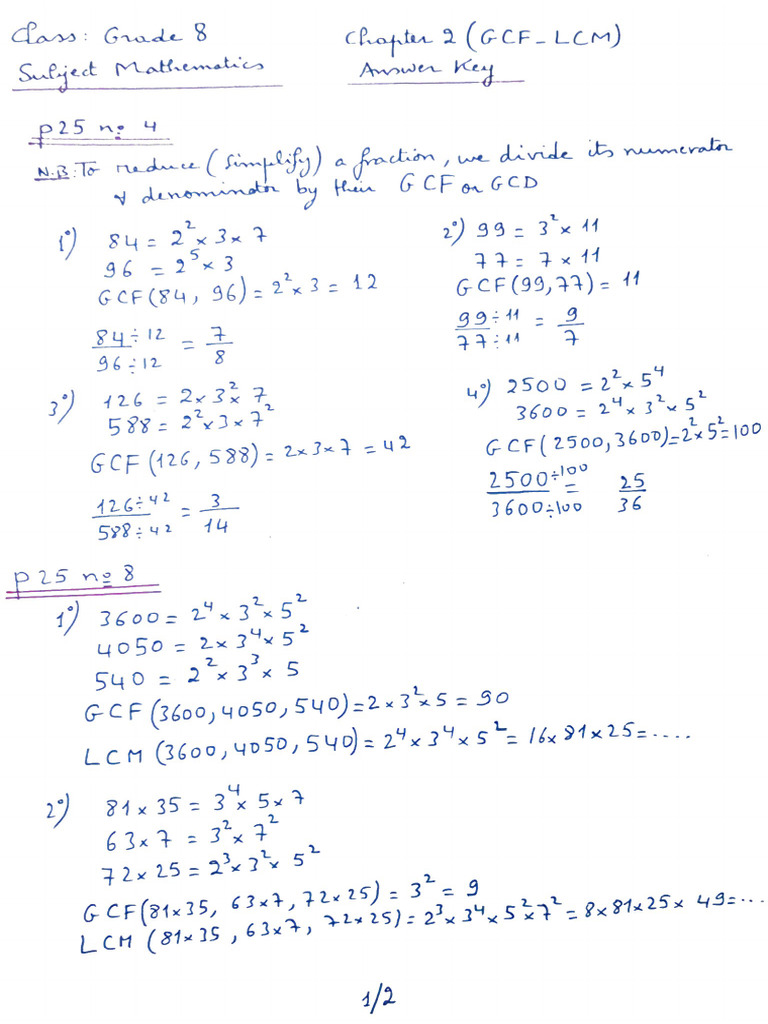 Class: Grade 8
Chapter 2 (GCF_LCM)
Subject Mathematics
Answer Key
p25 nº 4
N.B: To reduce (simplify) a fraction, we divide its numerator
& denominator by their GCF or GCD
1°) 84 = 2² × 3 × 7
96 = 2⁵ × 3
GCF(84, 96) = 2² × 3 = 12
84 ÷ 12 / 96 ÷ 12 = 7/8
2°) 99 = 3² × 11
77 = 7 × 11
GCF(99,77) = 11
99 ÷ 11 / 77 ÷ 11 = 9/7
3°) 126 = 2 × 3² × 7
588 = 2² × 3 × 7²
GCF (126, 588) = 2 × 3 × 7 = 42
126 ÷ 42 / 588 ÷ 42 = 3/14
4°) 2500 = 2² × 5⁴
3600 = 2⁴ × 3² × 5²
GCF(2500,3600) = 2² × 5² = 100
2500 ÷ 100 / 3600 ÷ 100 = 25/36
p25 nº 8
1°) 3600 = 2⁴ × 3² × 5²
4050 = 2 × 3⁴ × 5²
540 = 2² × 3³ × 5
GCF (3600, 4050, 540) = 2 × 3² × 5 = 90
LCM (3600, 4050, 540) = 2⁴ × 3⁴ × 5² = 16 × 81 × 25 = ....
2°) 81 × 35 = 3⁴ × 5 × 7
63 × 7 = 3² × 7²
72 × 25 = 2³ × 3² × 5²
GCF(81×35, 63×7, 72×25) = 3² = 9
LCM (81×35, 63×7, 72×25) = 2³ × 3⁴ × 5² × 7² = 8 × 81 × 25 × 49 = ...
1/2